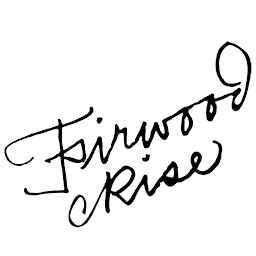 Fairwood
Rise